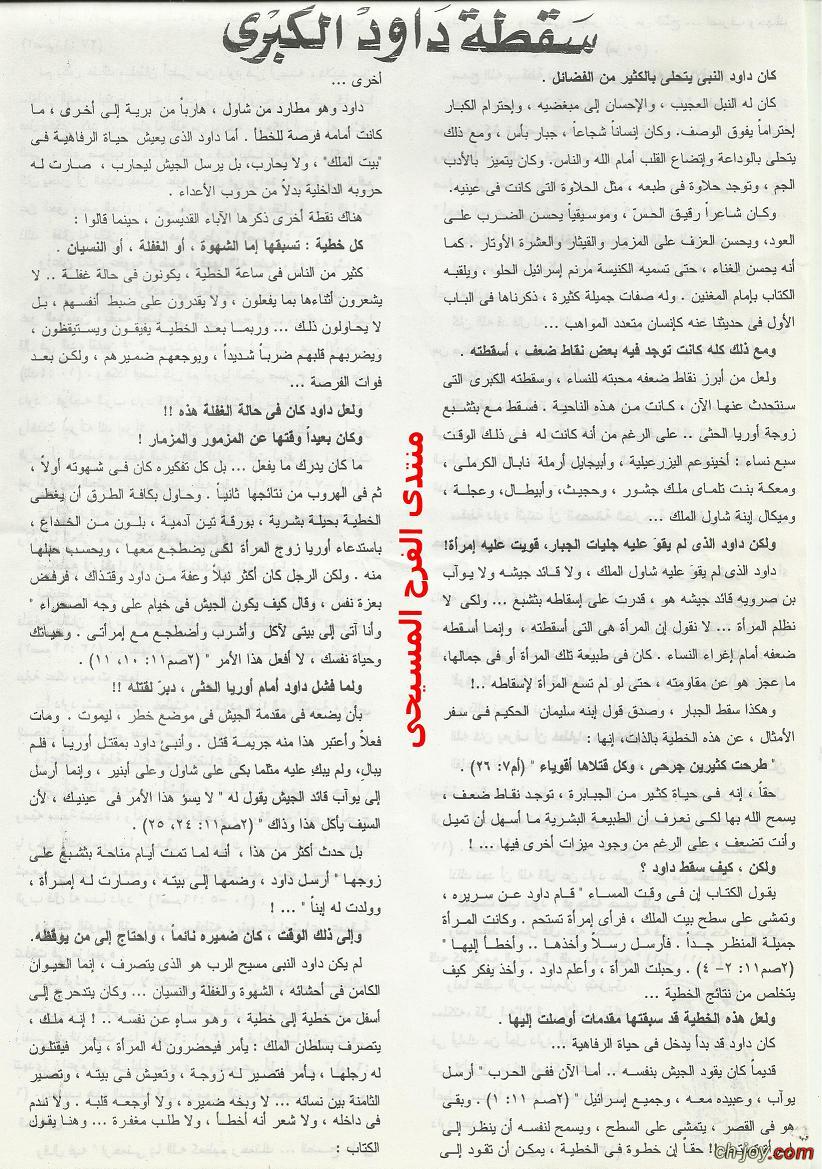 سَقطة دَاود الكبرى
كان داود النبى يتحلى بالكثير من الفضائل .
كان له النبل العجيب ، والإحسان إلى مبغضيه ، وإحترام الكبار
إحتراماً يفوق الوصف. وكان إنساناً شجاعاً ، جبار بأس ، ومع ذلك
يتحلى بالوداعة وإتضاع القلب أمام الله والناس. وكان يتميز بالأدب
الجم ، وتوجد حلاوة فى طبعه ، مثل الحلاوة التى كانت فى عينيه.
وكان شاعراً رقيق الحسّ ، وموسيقياً يحسن الضرب على
العود، ويحسن العزف على المزمار والقيثار والعشرة الأوتار . كما
أنه يحسن الغناء ، حتى تسميه الكنيسة مرنم إسرائيل الحلو ، ويلقبه
الكتاب بإمام المغنين . وله صفات جميلة كثيرة ، ذكرناها فى الباب
الأول فى حديثنا عنه كإنسان متعدد المواهب ...
ومع ذلك كله كانت توجد فيه بعض نقاط ضعف ، أسقطته .
ولعل من أبرز نقاط ضعفه محبته للنساء ، وسقطته الكبرى التى
سنتحدث عنها الآن ، كانت من هذه الناحية . فسقط مع بثشبع
زوجة أوريا الحثى .. على الرغم من أنه كانت له فى ذلك الوقت
سبع نساء : أخينوعم اليزرعيلية ، وأبيجايل أرملة نابال الكرملى ،
ومعكة بنت تلماى ملك جشور ، وحجيث، وأبيطال، وعجلة ،
وميكال إبنة شاول الملك ...
ولكن داود الذى لم يقوَ عليه جليات الجبار، قويت عليه إمرأة!
داود الذى لم يقوَ عليه شاول الملك ، ولا قائد جيشه ولا يوآب
بن صرويه قائد جيشه هو ، قدرت على إسقاطه بثشبع ... ولكى لا
نظلم المرأة ... لا نقول إن المرأة هى التى أسقطته ، وإنما أسقطه
ضعفه أمام إغراء النساء . كان فى طبيعة تلك المرأة أو فى جمالها،
ما عجز هو عن مقاومته ، حتى لو لم تسع المرأة لإسقاطه ..!
وهكذا سقط الجبار ، وصدق قول إبنه سليمان الحكيم فى سفر
الأمثال ، عن هذه الخطية بالذات، إنها :
" طرحت كثيرين جرحى ، وكل قتلاها أقوياء " (أم٧: ٢٦) .
حقاً ، إنه فى حياة كثير من الجبابرة ، توجد نقاط ضعف ،
يسمح الله بها لكى نعرف أن الطبيعة البشرية ما أسهل أن تميل
وأنت تضعف ، على الرغم من وجود ميزات أخرى فيها ... !
ولكن ، كيف سقط داود ؟
يقول الكتاب إن فى وقت المساء " قام داود عن سريره ،
وتمشى على سطح بيت الملك ، فرأى إمرأة تستحم . وكانت المرأة
جميلة المنظر جداً . فأرسل رسلاً وأخذها .. وأخطأ إليها "
(٢صم١١: ٢- ٤) . وحبلت المرأة ، وأعلم داود . وأخذ يفكر كيف
يتخلص من نتائج الخطية ...
ولعل هذه الخطية قد سبقتها مقدمات أوصلت إليها .
كان داود قد بدأ يدخل فى حياة الرفاهية ...
قديماً كان يقود الجيش بنفسه .. أما الآن ففى الحرب " أرسل
يوآب ، وعبيده معه ، وجميع إسرائيل " (٢صم ١١: ١) . وبقى
هو فى القصر ، يتمشى على السطح ، ويسمح لنفسه أن ينظر إلى
!! حقاً إن خطوة فى الخطية ، يمكن أن تقود إلى
أخرى ...
داود وهو مطارد من شاول ، هارباً من برية إلى أخرى ، ما
كانت أمامه فرصة للخطأ . أما داود الذى يعيش حياة الرفاهية فى
"بيت الملك" ، ولا يحارب، بل يرسل الجيش ليحارب ، صارت له
حروبه الداخلية بدلاً من حروب الأعداء .
هناك نقطة أخرى ذكرها الآباء القديسون ، حينما قالوا :
كل خطية : تسبقها إما الشهوة ، أو الغفلة ، أو النسيان .
كثير من الناس فى ساعة الخطية ، يكونون فى حالة غفلة .. لا
يشعرون أثناءها بما يفعلون ، ولا يقدرون على ضبط أنفسهم ، بل
لا يحاولون ذلك ... وربما بعد الخطية يفيقون ويستيقظون ،
ويضربهم قلبهم ضرباً شديداً ، ويوجعهم ضميرهم ، ولكن بعد
فوات الفرصة ...
ولعل داود كان فى حالة الغفلة هذه !!
وكان بعيداً وقتها عن المزمور والمزمار !
ما كان يدرك ما يفعل ... بل كل تفكيره كان فى شهوته أولاً ،
ثم فى الهروب من نتائجها ثانياً . وحاول بكافة الطرق أن يغطى
الخطية بحيلة بشرية ، بورقة تين آدمية ، بلون من الخداع ،
باستدعاء أوريا زوج المرأة لكى يضطجع معها ، ويحسب حبلها
منه . ولكن الرجل كان أكثر نبلاً وعفة من داود وقتذاك ، فرفض
بعزة نفس ، وقال كيف يكون الجيش فى خيام على وجه الصحراء "
وأنا آتى إلى بيتى لآكل وأشرب وأضطجع مع إمرأتى . وحياتك
وحياة نفسك ، لا أفعل هذا الأمر " (٢صم١١: ١٠، ١١) .
ولما فشل داود أمام أوريا الحثى ، دبرّ لقتله !!
بأن يضعه فى مقدمة الجيش فى موضع خطر ، ليموت . ومات
فعلاً وأعتبر هذا منه جريمة قتل . وأنبئ داود بمقتل أوريا ، فلم
يبالِ، ولم يبك عليه مثلما بكى على شاول وعلى أبنير ، وإنما أرسل
إلى يوآب قائد الجيش يقول له " لا يسؤ هذا الأمر فى عينيك ، لأن
السيف يأكل هذا وذاك " (٢صم١١: ٢٤، ٢٥) .
بل حدث أكثر من هذا ، أنه لما تمت أيام مناحة بثشبع على
زوجها " أرسل داود ، وضمها إلى بيته ، وصارت له إمرأة ،
وولدت له إبناً " ... !
وإلى ذلك الوقت ، كان ضميره نائماً ، واحتاج إلى من يوقظه.
لم يكن داود النبى مسيح الرب هو الذى يتصرف ، إنما الحيوان
الكامن فى أحشائه ، الشهوة والغفلة والنسيان ... وكان يتدحرج إلى
أسفل من خطية إلى خطية ، وهو ساهٍ عن نفسه .. ! إنه ملك ،
يتصرف بسلطان الملك : يأمر فيحضرون له المرأة ، يأمر فيقتلون
له رجلها ، يأمر فتصير له زوجة ، وتعيش فى بيته ، وتصير
الثامنة بين نسائه ... لا وبخه ضميره ، ولا أوجعه قلبه . ولا ندم
فى داخله ، ولا شعر أنه أخطأ ، ولا طلب مغفرة ... وهنا يقول
الكتاب :
منتدى الفرح المسيحى
ch-joy.com